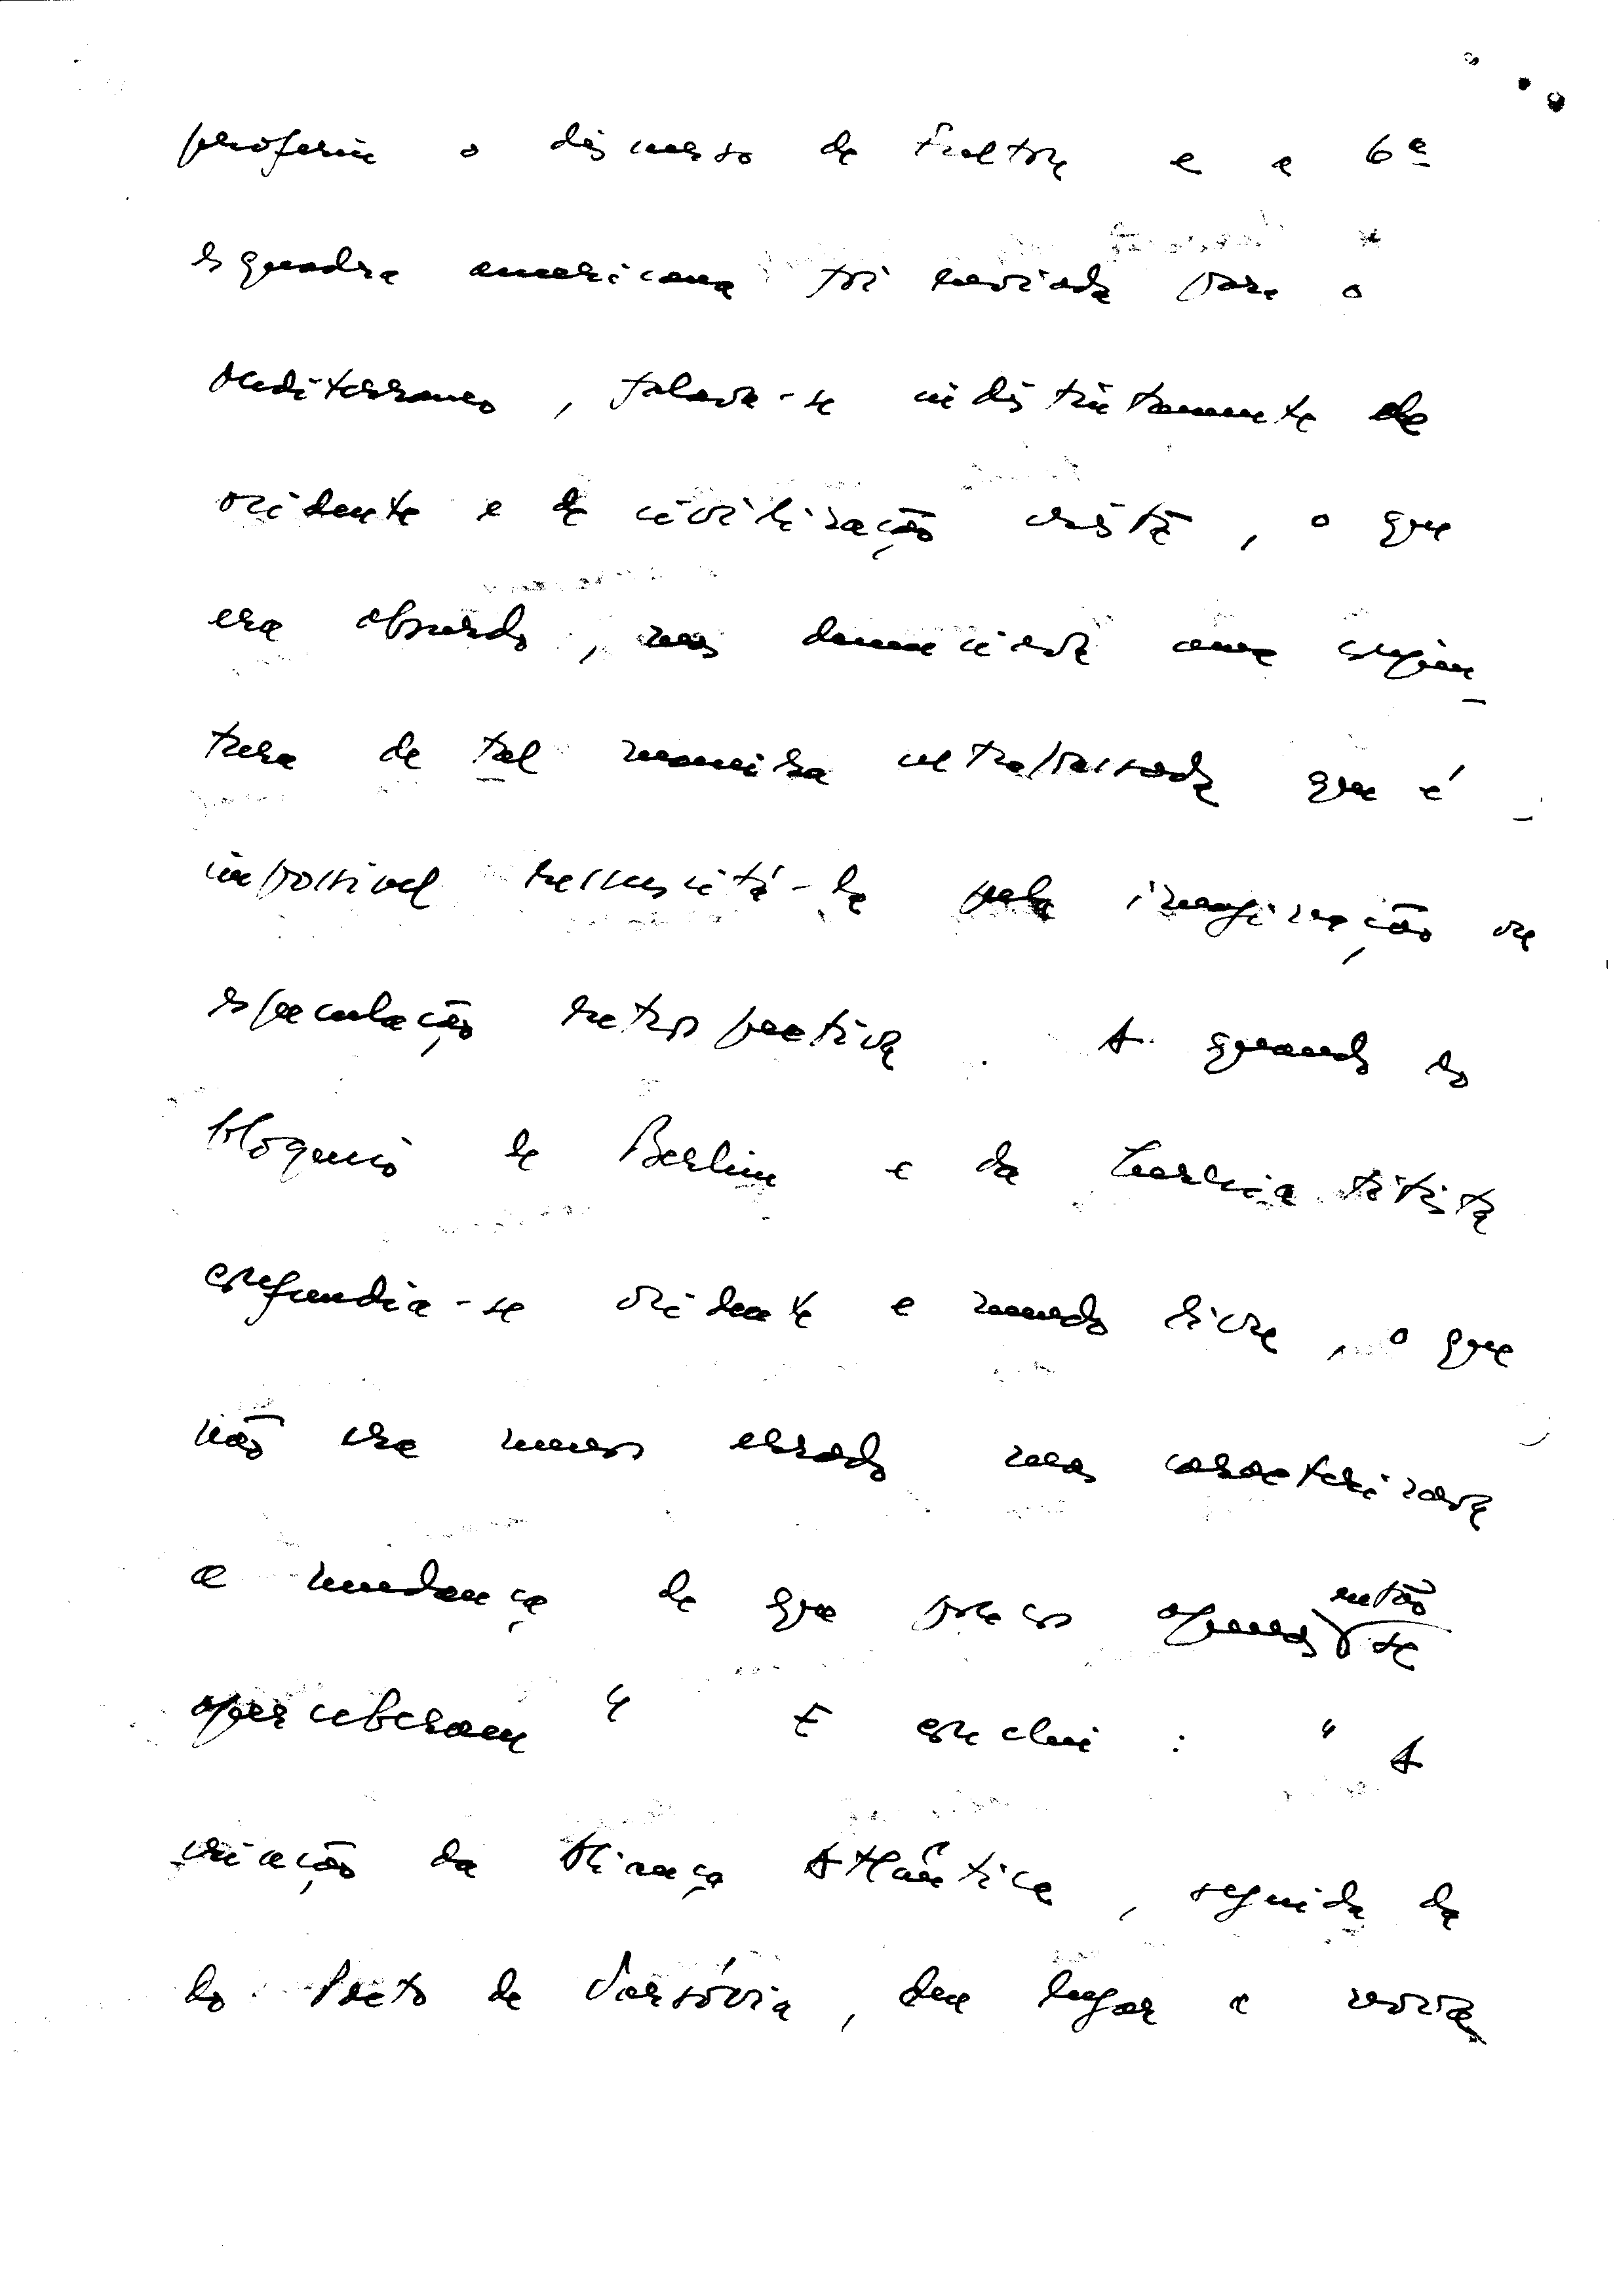 proferiu o discurso de Fulton e a 6ª
esquadra americana foi enviada para o
Mediterraneo, falava-se indistintamente de
ocidente e de civilização cristã, o que
era absurdo, mas denunciava uma conjun
tura de tal maneira ultrapassada que é
impossivel ressuscitá-la pela imaginação ou
especulação retrospectiva. A quando do
bloqueio de Berlim e da titista
confundia-se ocidente e mundo livre, o que
não era menos errado mas caracterizava
a mudança de que poucos apenas então se
aperceberam" E conclui: "A
criação da Aliança Atlântica, seguida da
do Pacto de Varsóvia, deu lugar a nova